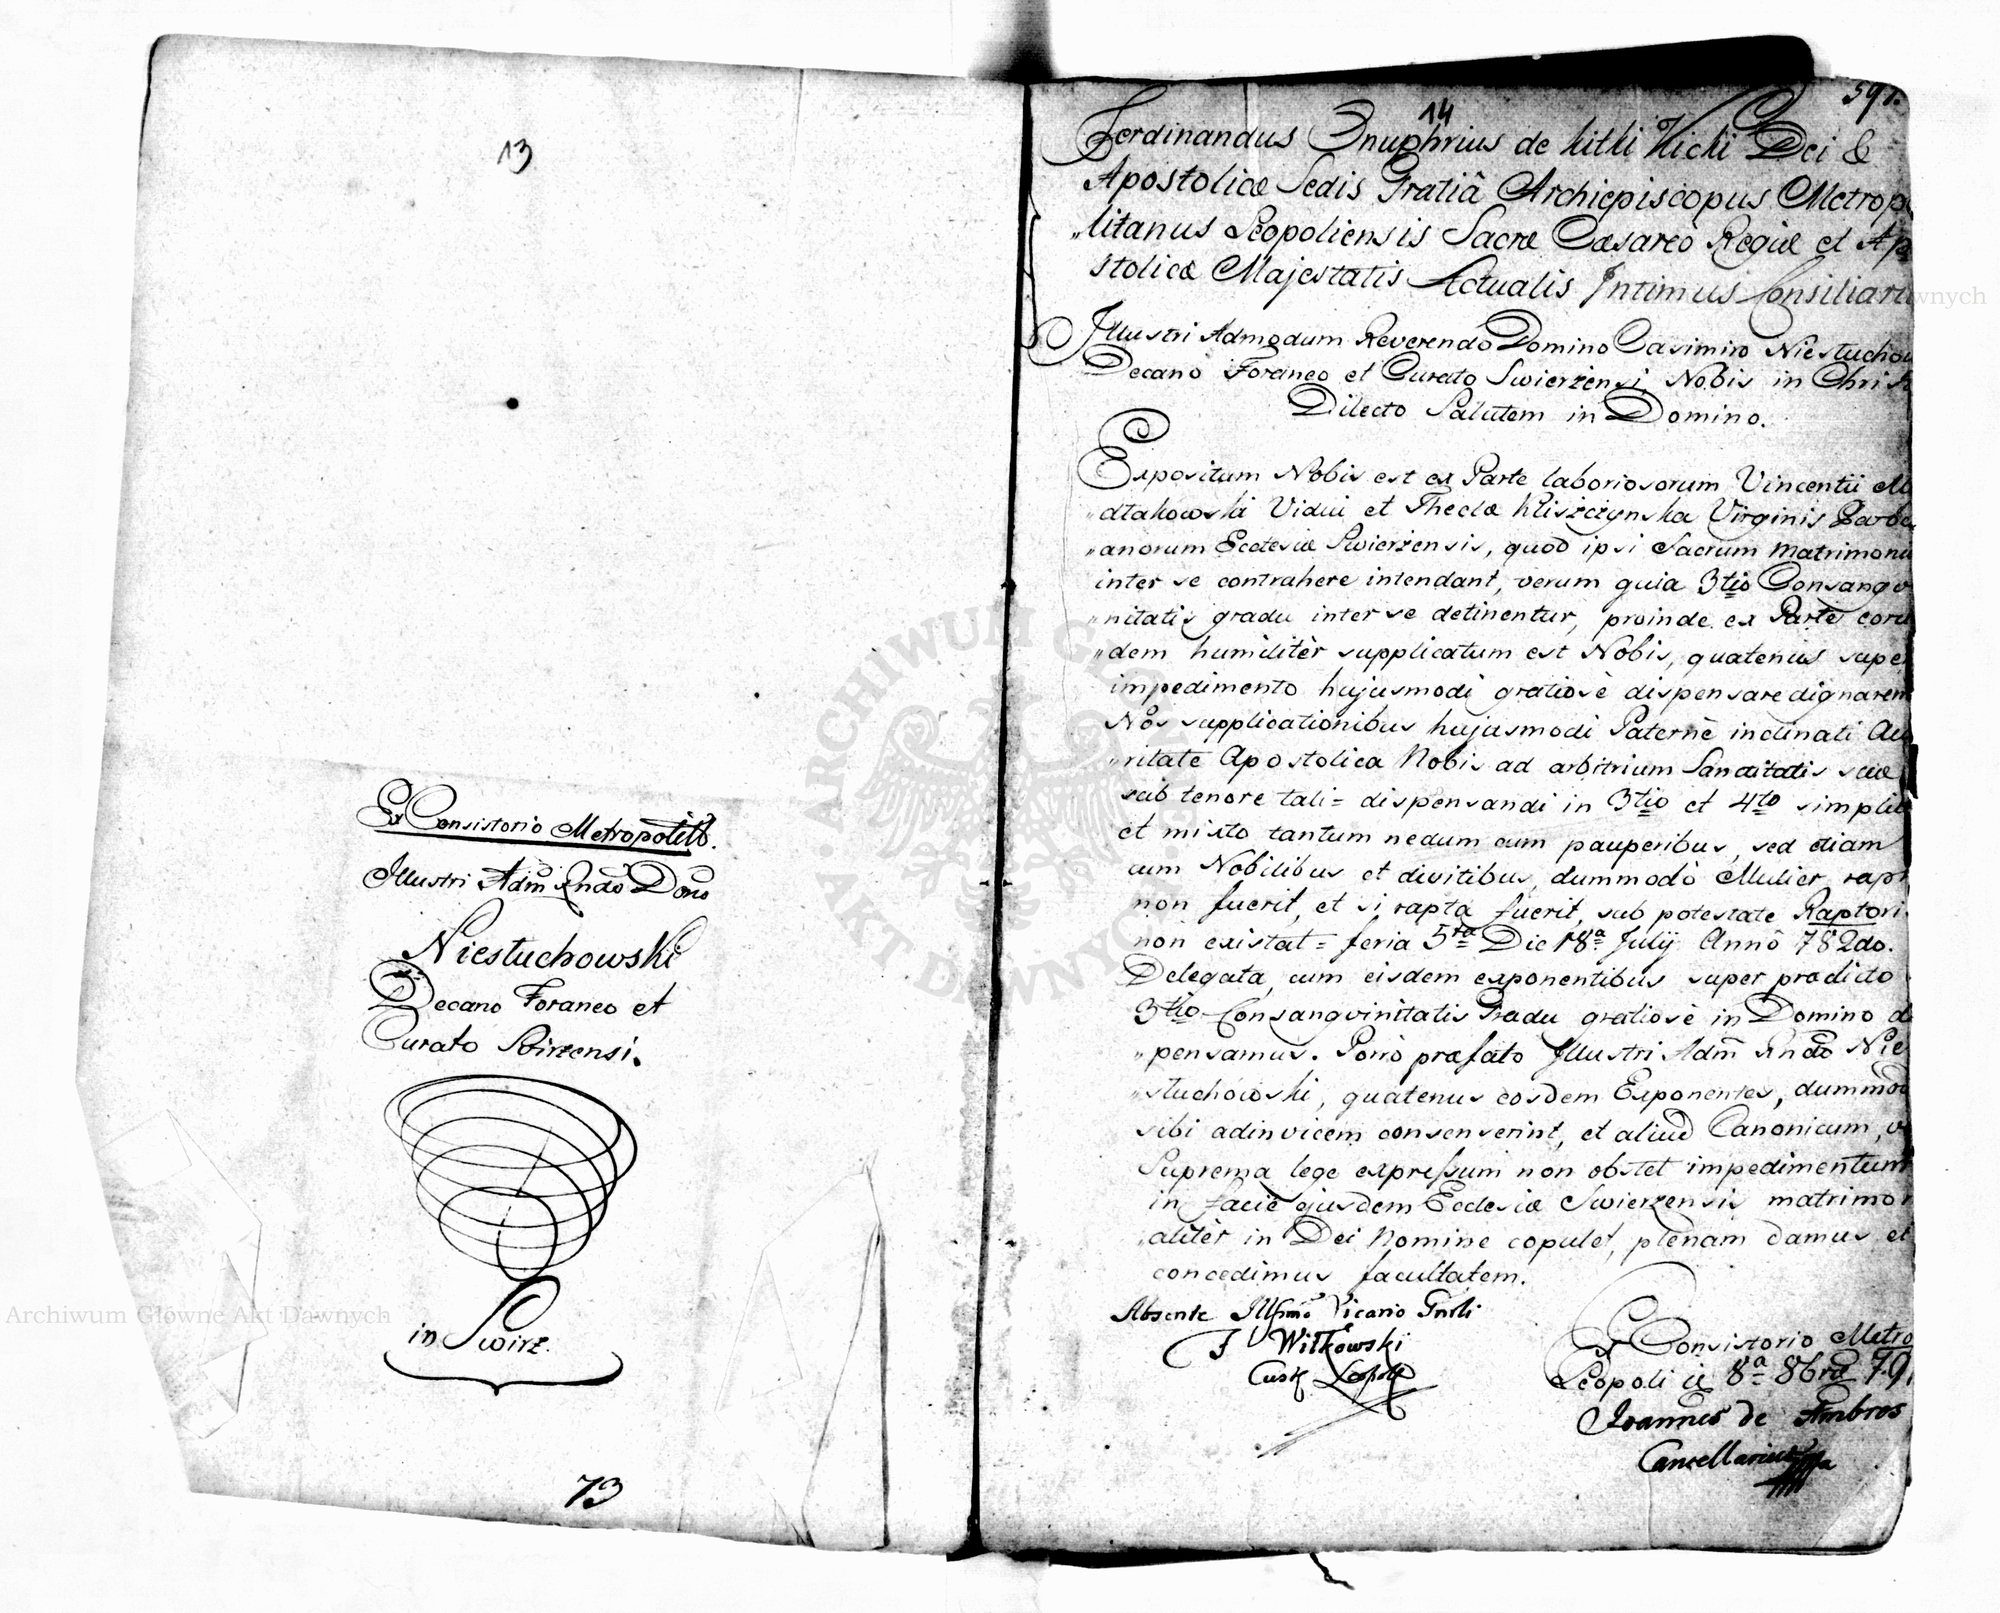 13
Ex Consistorio Metropolit.
Illustri Adm Rndo Dno
Niestuchowski
Decano Foraneo et
Curato Swirzensi.
in Swirz.
73
591.
14
Ferdinandus Onuphrius de Kitki Kicki Dei &
Apostolicæ Sedis Gratiâ Archiepiscopus Metropo
„litanus Leopoliensis Sacræ Cæsareo Regiæ et Apo
stolicæ Majestatis Actualis Intimus Consiliari
Illustri Admodum Reverendo Domino Casimiro Niestuchow
Decano Foraneo et Curato Swierzensi, Nobis in Christ
Dilecto Salutem in Domino.
Expositum Nobis est ex Parte laboriosorum Vincentii
Vidui et Theclæ Kliszczynska Virginis
„anorum Ecclesiæ Swierzensis, quod ipsi Sacrum matrimoniu
inter se contrahere intendant, verum quia 3tio Consangv
„nitatis gradu inter se detinentur, proinde ex Parte coru
„dem humilitèr supplicatum est Nobis, quatenus super
impedimento hujusmodi gratiosè dispensare dignarem
Nos supplicationibus hujusmodi Paternè inclinati Au
„ritate Apostolica Nobis ad arbitrium Sanctitatis suæ
sub tenore tali= dispensandi in 3tio et 4to simplic
et mixto tantum nedum cum pauperibus, sed etiam
cum Nobilibus et divitibus, dummodò Mulier rapt
non fuerit, et si rapta fuerit, sub potestate Raptori
non existat= feria 5ta Die 18a Julij Annô 782do.
Delegata, cum eisdem exponentibus super prædicto
3tio Consangvinitatis Gradu gratiosè in Domino d
„pensamus. Porrò præfato Illustri Adm Rndo Nie
„stuchowski, quatenus eosdem Exponentes, dummod
sibi adinvicem consenserint, et aliud Canonicum, v
Suprema lege expressum non obstet impedimentum
in facie ejusdem Ecclesiæ Swierzensis matrimon
„alitèr in Dei Nomine copulet, plenam damus et
concedimus facultatem.
Absente Illmo Vicario Gnrli
F Witkowski
Cust Leopol
Ex Consistorio Metro
Leopoli 8a 8bra 79
Joannes de Ambros
Cancellarius
Archiwum Główne Akt Dawnych
ARCHIWUM GŁÓWNE AKT DAWNYCH